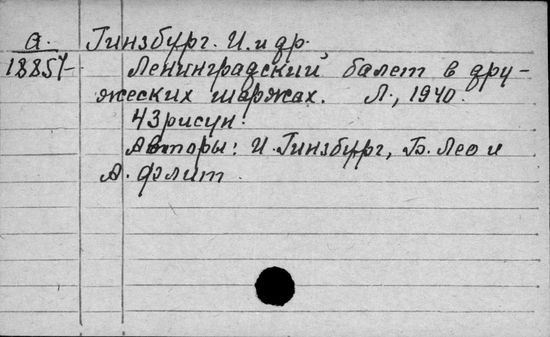 а. Гинзбург. И. и др.
18857 Ленинградский балет в дру-
жеских шаржах. Л., 1940.
43 рисун.
Авторы: И. Гинзбург, Б. Лео и
А. Флит.